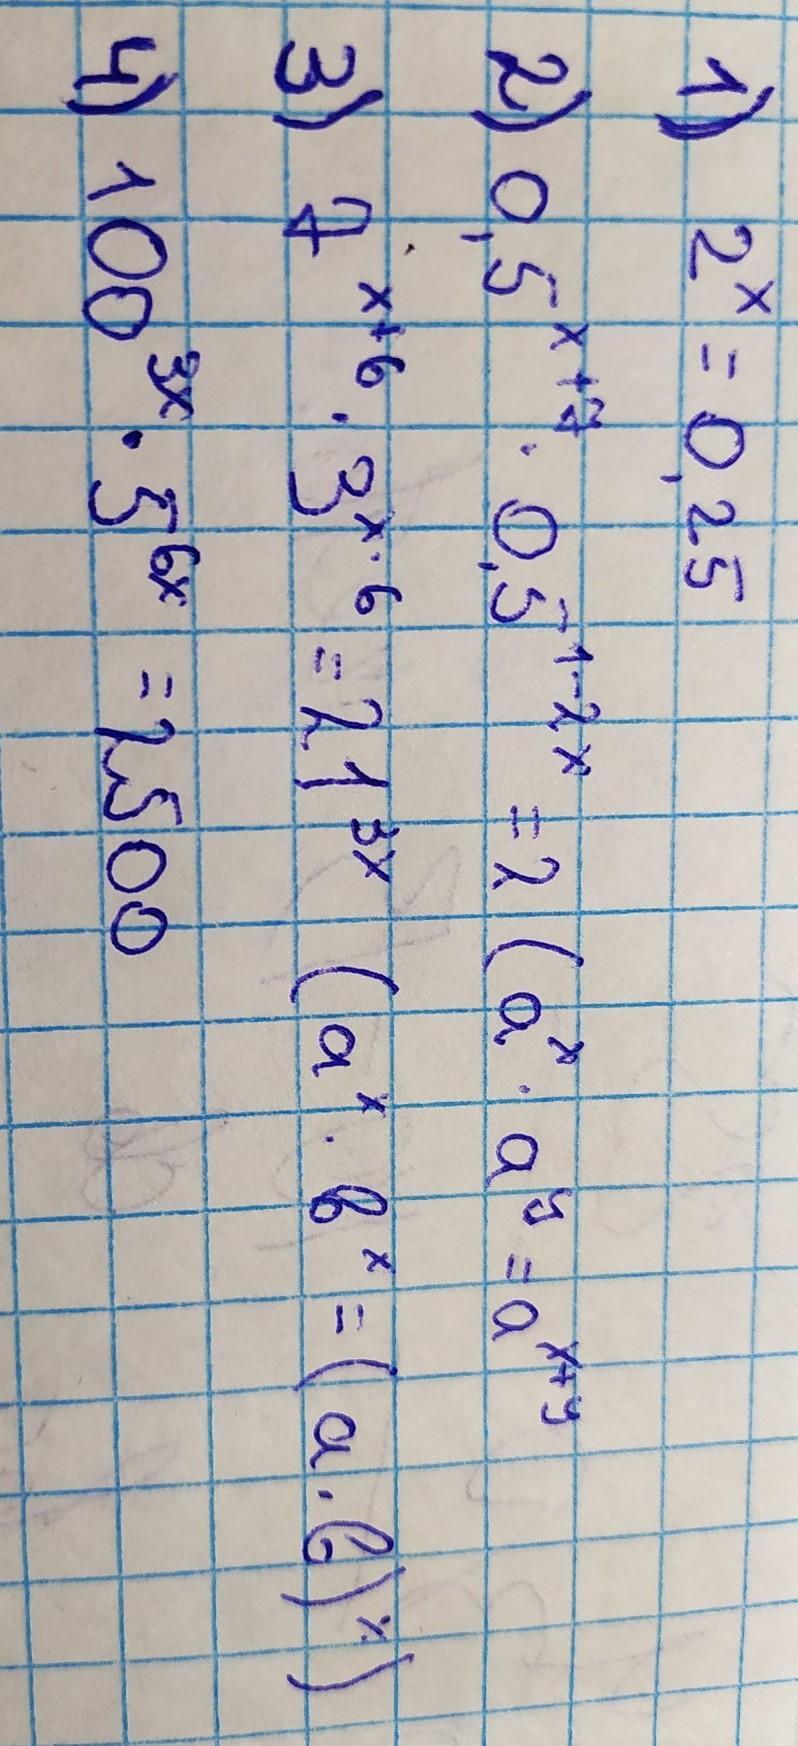 1) 2^x = 0,25
2) 0,5^(x+7) · 0,5^(1-2x) = 2 (a^x · a^y = a^(x+y)
3) 7^(x+6) · 3^(x·6) = 21^(3x) (a^x · b^x = (a · b)^x)
4) 100^(3x) · 5^(6x) = 2500